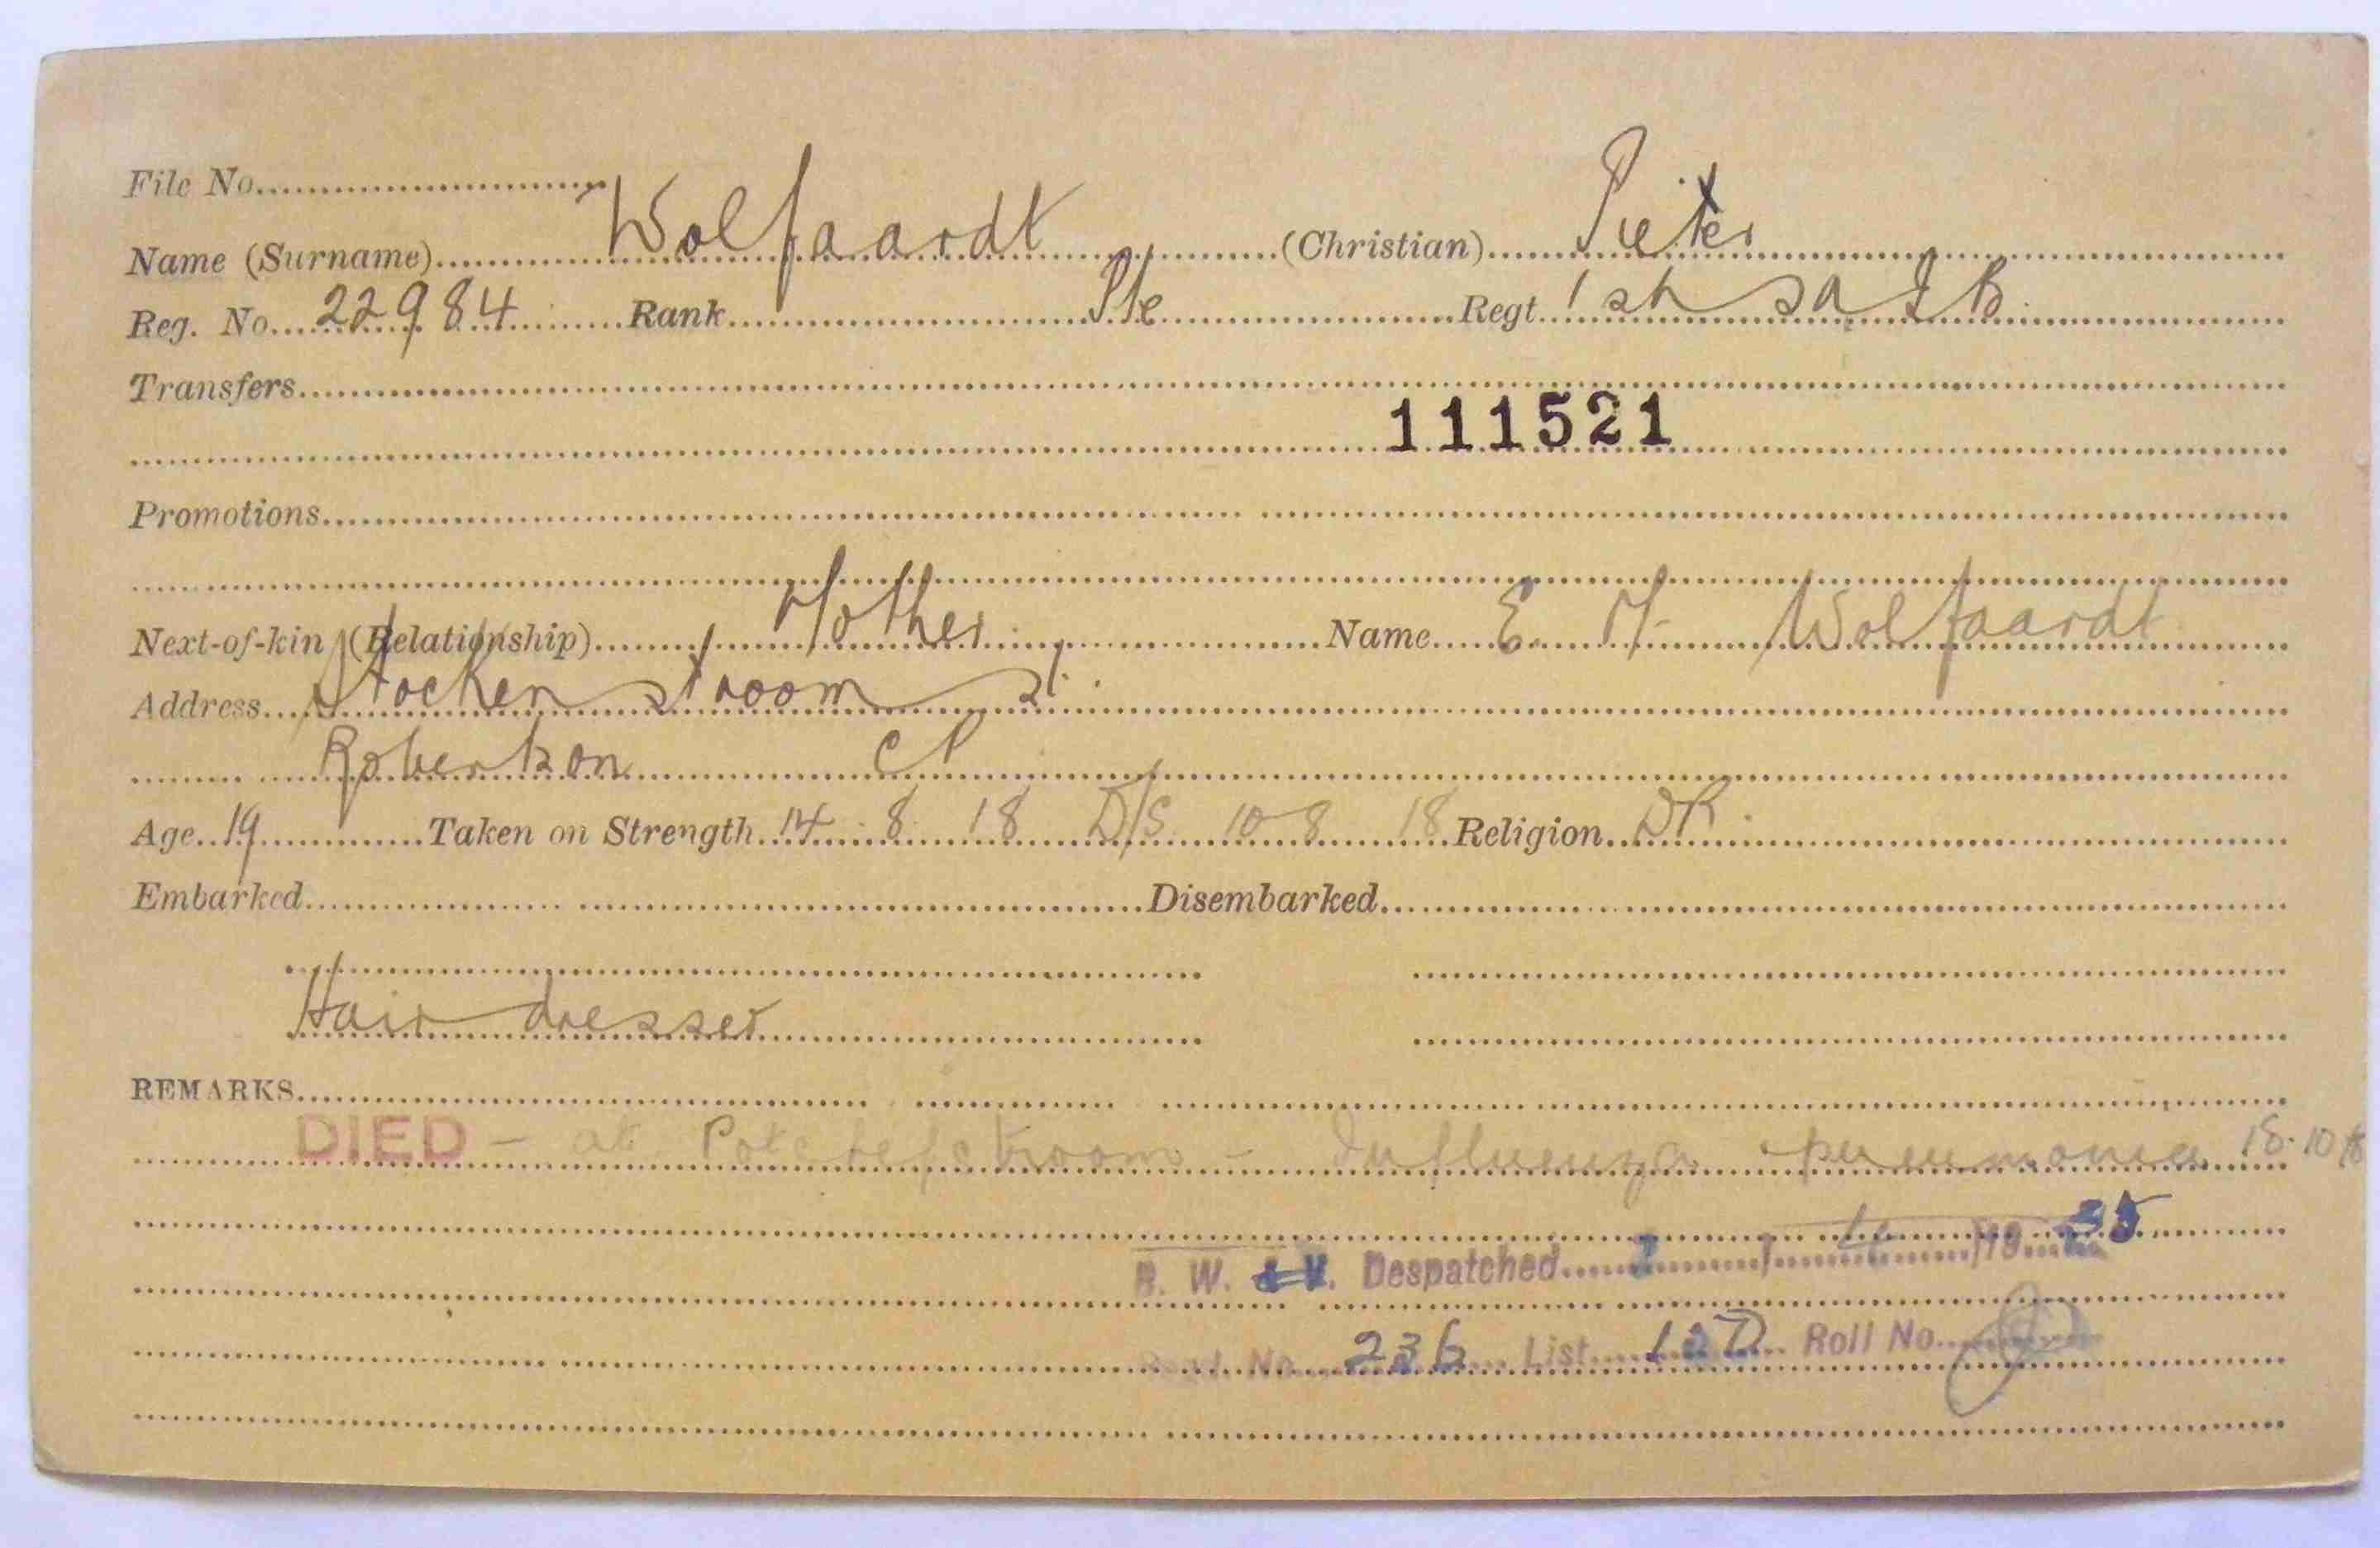 File No.
Name (Surname) Wolfaardt (Christian) Pieter
Reg. No. 22984 Rank Pte Regt. 1st SA I B.
Transfers
111521
Promotions
Next-of-kin (Relationship) Mother Name E. M. Wolfaardt
Address Stockenstroom St.
Robertson CP
Age 19 Taken on Strength 14 8 18 D/S 10 8 18 Religion DR.
Embarked Disembarked
Hair dresser
REMARKS
DIED - at Potchefstroom - Influenza pneumonia 18.10.18
B. W. & V. Despatched / /19 35
No. 236 List Roll No.